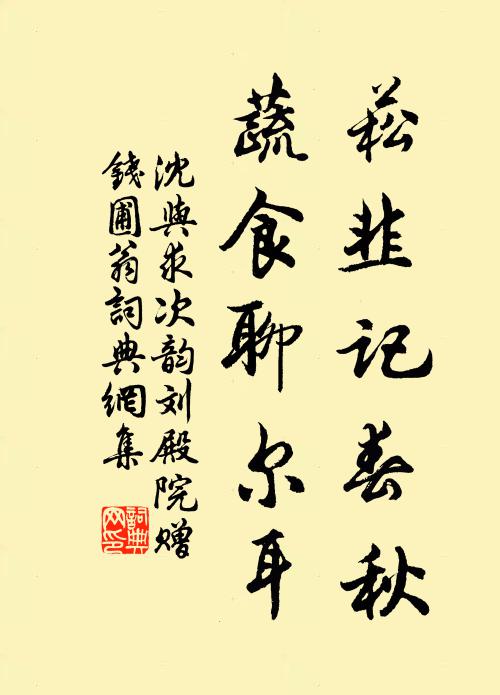 菘韭记春秋
蔬食聊尔耳
沈与求次韵刘殿院赠
錢圃翁詞典網集
詞典网印